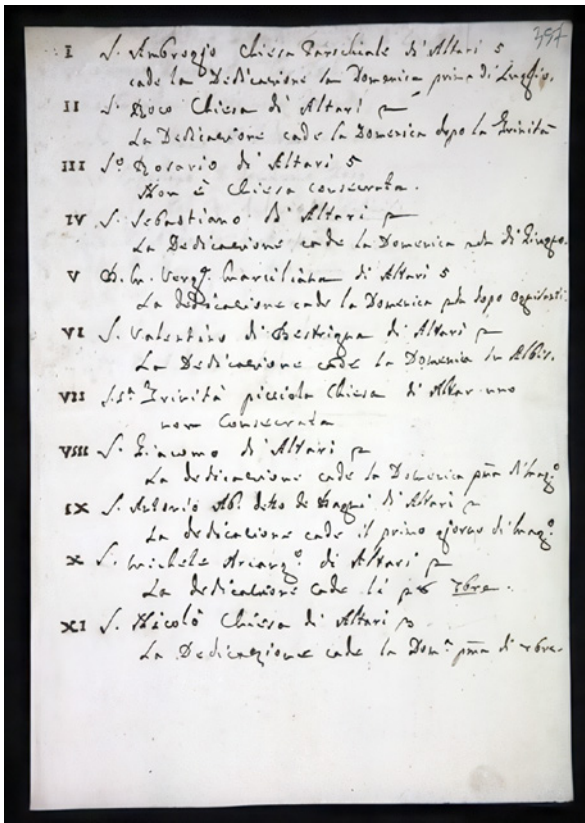 397
I S. Ambrogio Chiesa Parochiale di Altari 5
cade la Dedicazione la Domenica prima di Luglio.
II S. Roco Chiesa di Altari
La Dedicazione cade la Domenica dopo la Trinità
III S.o Rosario di Altari 5
Non è Chiesa consecrata.
IV S. Sebastiano di Altari
La Dedicazione cade la Domenica di
V B. M. Verg. Marciliana di Altari 5
La dedicazione cade la Domenica pma dopo Ognisanti.
VI S. Valentino di Bestrigna di Altari
La Dedicazione cade la Domenica in Albis.
VII S.S.a Trinità picciola Chiesa di Altar uno
non Consecrata
VIII S. Giacomo di Altari
La dedicazione cade la Domenica pma di Mag.o
IX S. Antonio Ab. detto de di Altari
La dedicazione cade il primo giorno di Mag.o
X S. Michele Arcang.o di Altari
La dedicazione cade li 7bre.
XI S. Nicolò Chiesa di Altari 3
La Dedicazione cade la Dom.a pma di